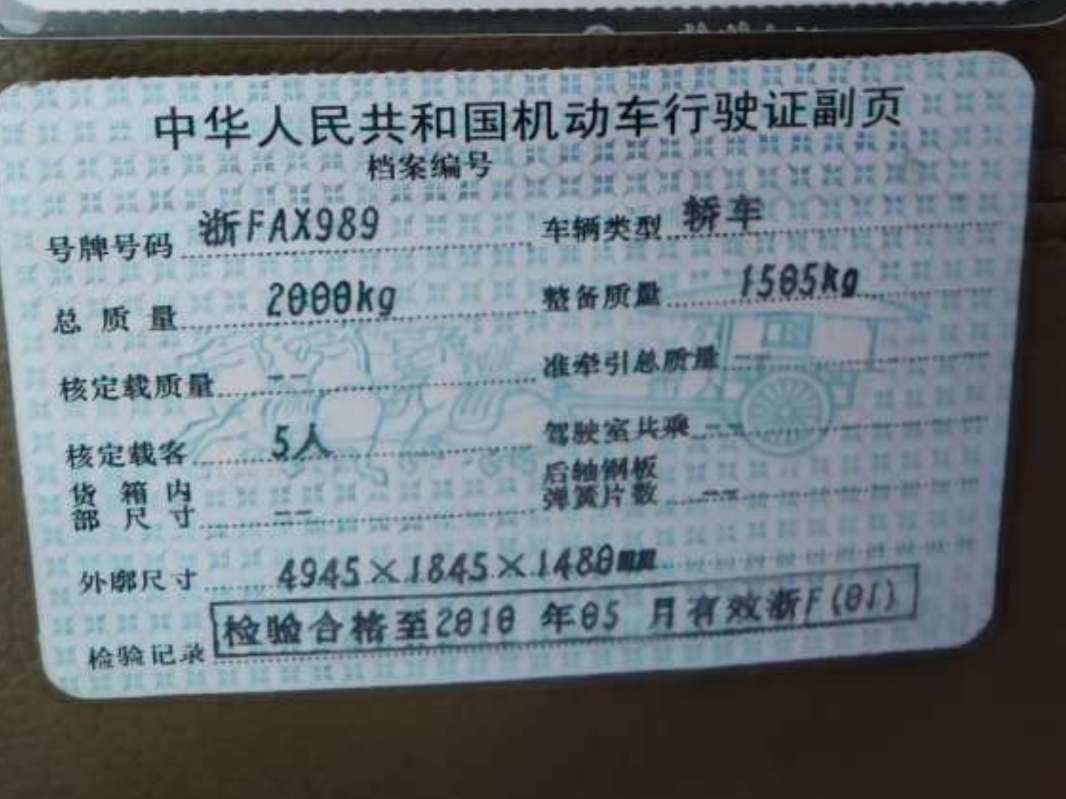 中华人民共和国机动车行驶证副页
档案编号
号牌号码 浙FAX989 车辆类型 轿车
总质量 2000kg 整备质量 1505kg
核定载质量 -- 准牵引总质量 --
核定载客 5人 驾驶室共乘 --
货箱内部尺寸 -- 后轴钢板弹簧片数 --
外廓尺寸 4945×1845×1480mm
检验记录 检验合格至2010 年05 月有效浙F(01)